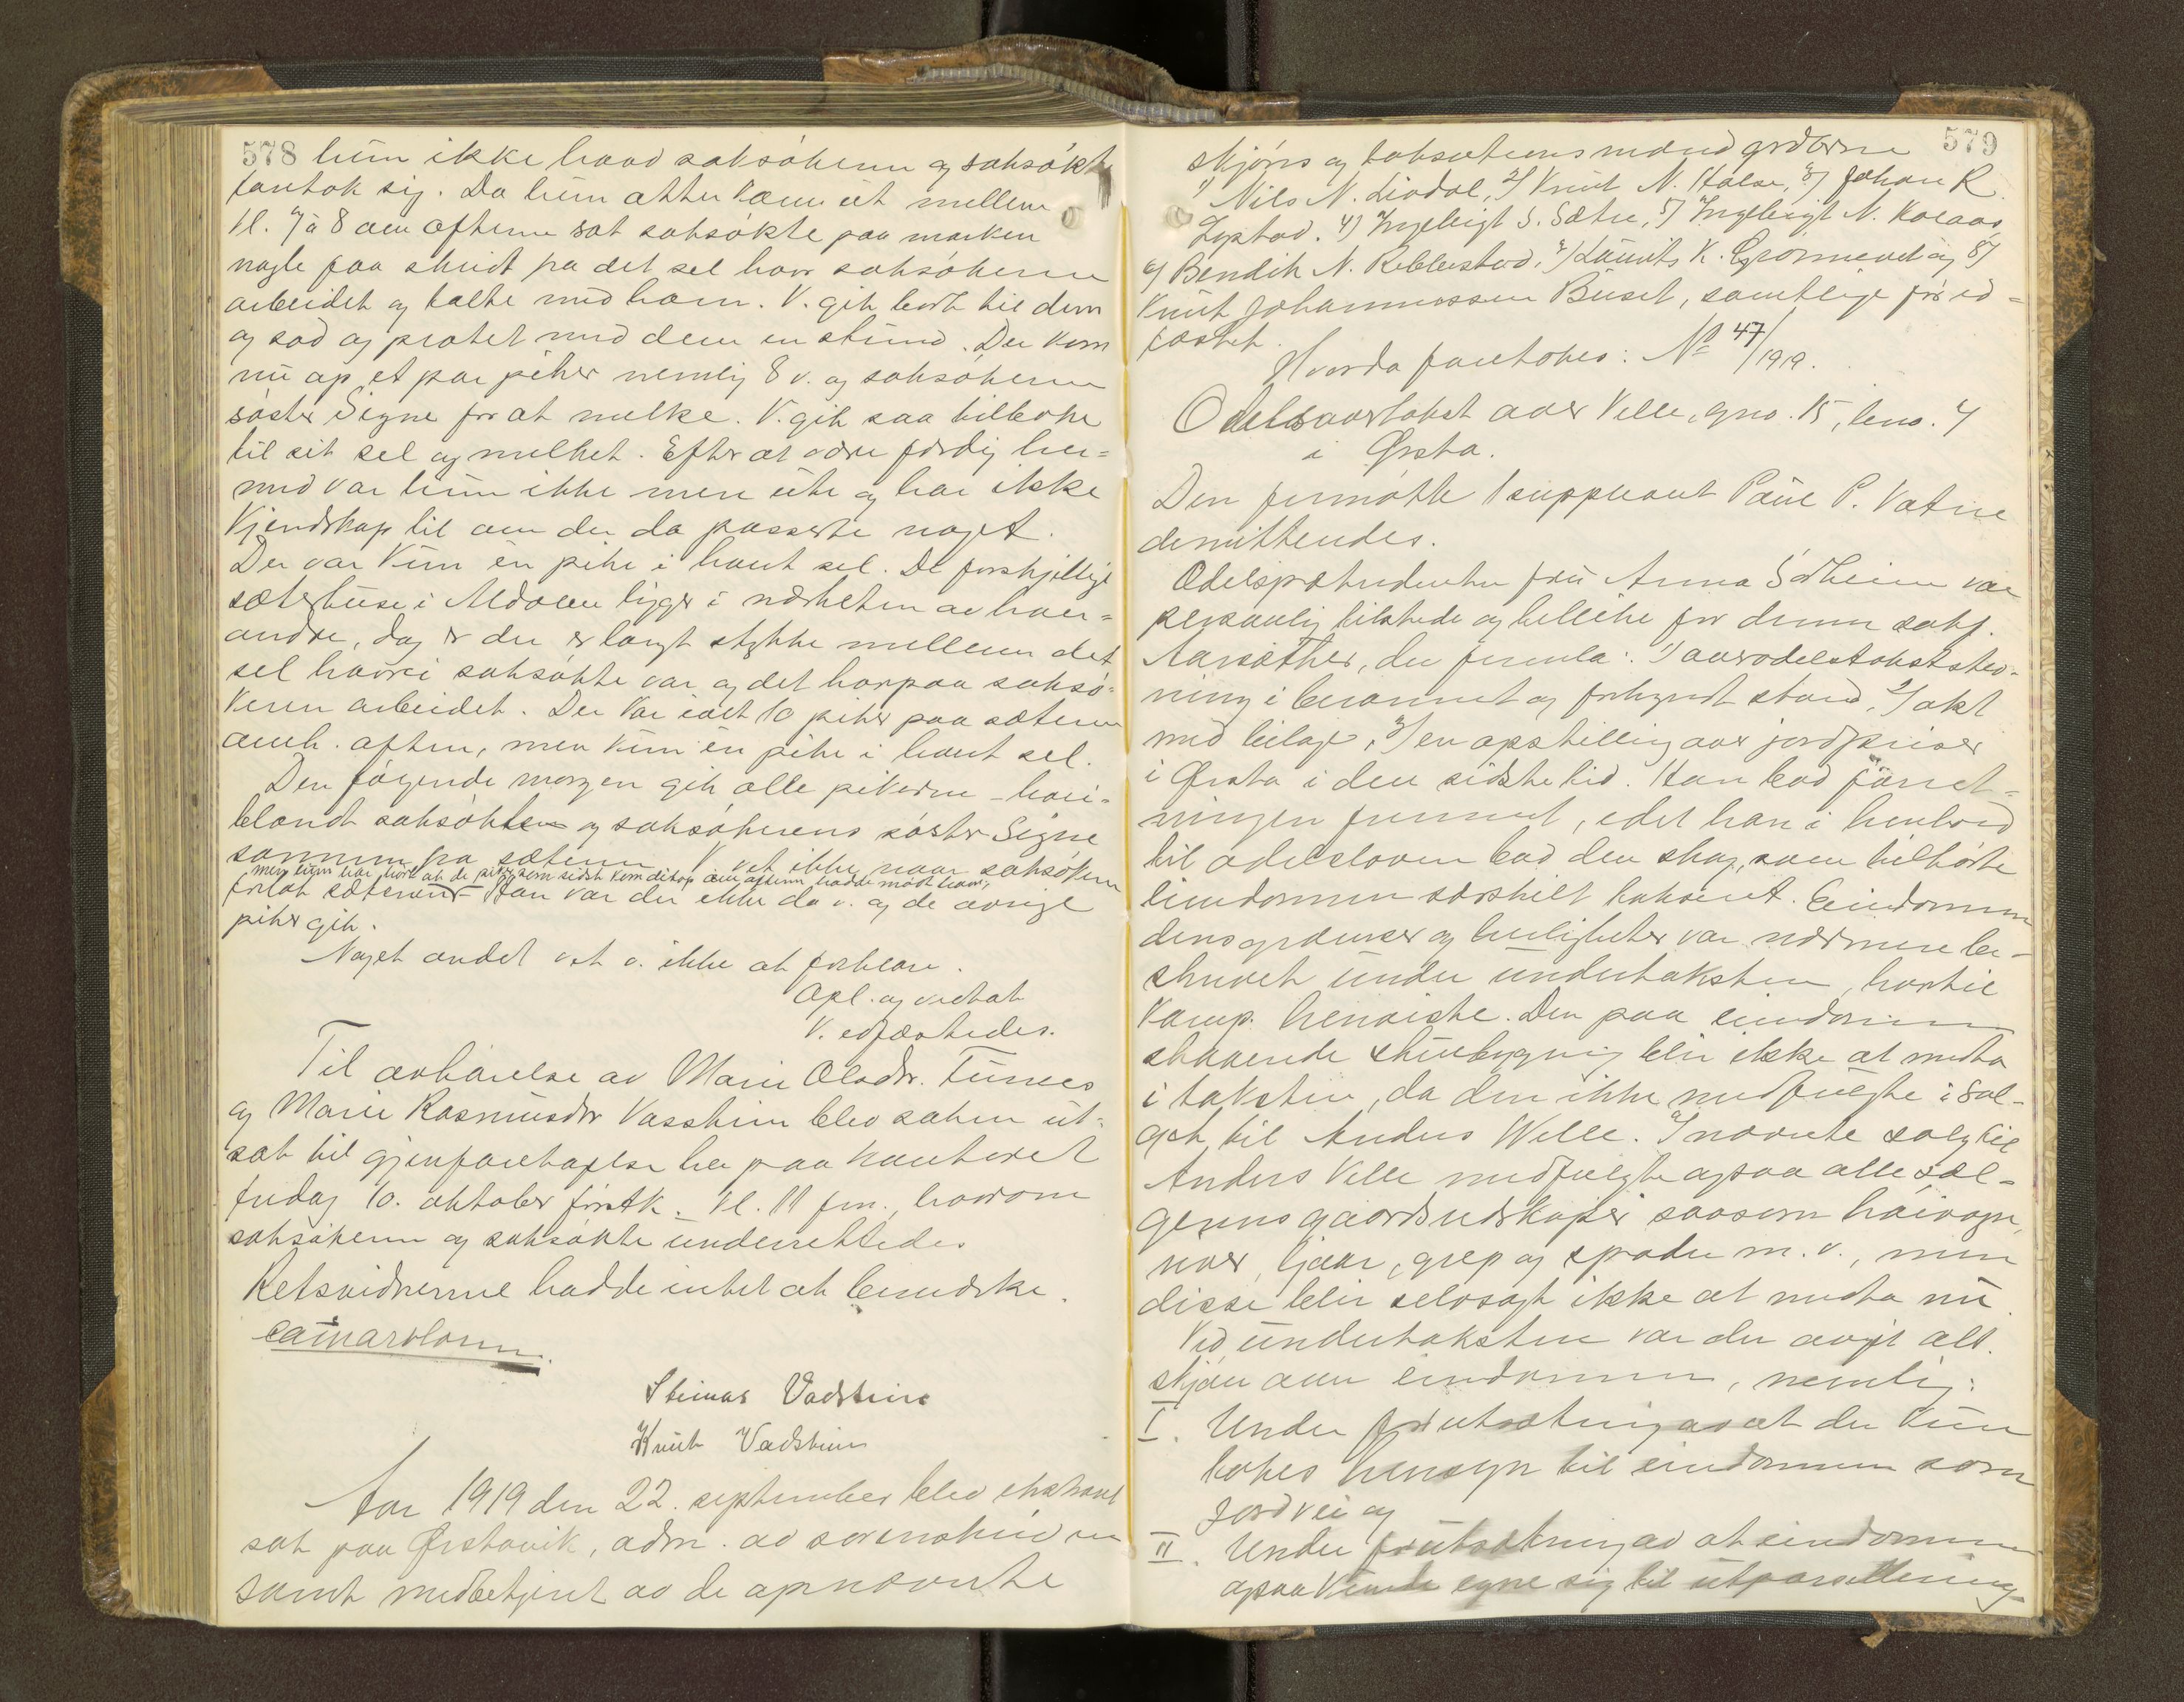 578 hun ikke hvad saksökeren og saksökte
foretok sig. Da hun atter kom ut mellem
kl. 7 à 8 om aftenen sat saksökte paa marken
nogle faa skridt fra det sel hvor saksökeren
arbeidet og talte med ham. V. gik bort til dem
og sad og pratet med dem en stund. Der kom
nu op et par piker nemlig 8 v. og saksökerens
söster Signe for at melke. V. gik saa tilbake
til sit sel og melket. Efter at være færdig her-
med var hun ikke mere ute og har ikke
kjendskap til om der da passerte noget.
Der var kun én pike i hvert sel. De forskjellige
sæterhuse i Aldalen ligger i nærheten av hver-
andre, dog er der er langt stykke mellem det
sel hvori saksökte var og det hvorpaa saksö-
keren arbeidet. Der var ialt 10 piker paa sæteren
omh. aften, men kun én pike i hvert sel.
Den fölgende morgen gik alle pikerne - hvori-
blandt saksökten og saksökerens söster Signe
sammen fra sæteren. V. vet ikke naar saksökeren
men hun har hört at de piker som sidst kom ditop om aftenen hadde mödt ham,
forlot sæteren. Han var der ikke da v. og de övrige
piker gik.
Noget andet vet v. ikke at forklare.
Opl. og vedtat
V. edfæstedes.
Til avhörelse av Marie Olsdr. Funes
og Marie Rasmusdr Vasstrin blev saken ut-
sat til gjenforetagelse her paa kontoret
fredag 10. oktober förstk. kl. 11 fm., hvorom
saksökeren og saksökte underrettedes
Retsvidnerne hadde intet at bemerke.
Steinar Vadstein
Knut Vadstein
Aar 1919 den 22. september blev ekstraret
sat paa Ørstavik, adm. av sorenskriveren
samt medbetjent av de opnævnte
579
skjöns og taksationsmænd grdbrne
1) Nils N. Livdal, 2) Knut N. Halse, 3) Johan R.
4) Ingebrigt S. Sætre, 5) Ingebrigt N. Kolaas
6) Bendik N. Ribbestad, 7) Laurits K. og 8)
Knut Johannessen Buset, samtlige för ed-
fæstet.
Hvorda foretokes: No 47/1919.
Odelsovertakst over Velle, gno. 15, bno. 7
i Ørsta.
Den fremmötte suppleant Paul P. Vatne
demittendes.
Odelsprætendenten fru Anna Sörheim var
personlig tilstede og likeledes for denne sakf.
Aarsæther, der fremla: 1) overodelstakststev-
ning i beramnet og forkyndt stand, 2) akt
med bilage, 3) en opstilling over jordpriser
i Ørsta i den sidste tid. Han bad forret-
ningen fremmet, idet han i henhold
til odelsloven bad den skog, som tilhörte
eiendommen særskilt taksert. Eiendommen
dens grænser og herligheter var nærmere be-
skrevet under undertaksten, hvortil
komp. henviste. Den paa eiendommen
staaende stuebygning blir ikke at medta
i taksten, da den ikke medfulgte i sal-
get til Anders Welle. I nævnte salg til
Anders Velle medfulgte ogsaa alle sæl-
gerens gaardsredskaper saasom höivogn,
river, ljaar, grep og spader m. v., men
disse blir selvsagt ikke at medta nu.
Ved undertaksten var der avgit alt.
skjön over eiendommen, nemlig:
I. Under forutsætning av at der kun
tokes hensyn til eiendommen som
jordvei og
II. Under forutsætning av at eiendommen
ogsaa kunde egne sig til utparsellering